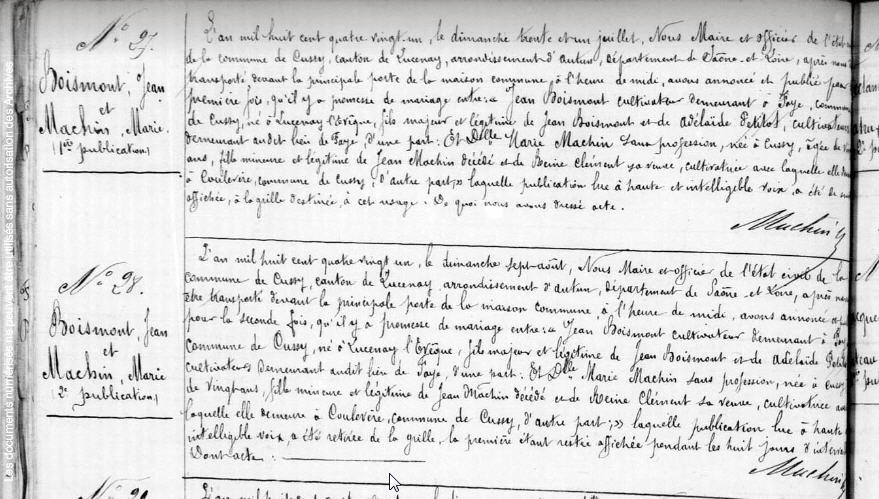 N° 27.
Boismont, Jean
et
Machin, Marie.
(1re publication)
L'an mil huit cent quatre vingt un, le dimanche trente et un juillet, Nous Maire et officier de l'état
de la commune de Cussy, canton de Lucenay, arrondissement d'autun, département de Saône et Loire, après nous
transporté devant la principale porte de la maison commune, à l'heure de midi, avons annoncé et publié pour
première fois, qu'il y a promesse de mariage entre: « Jean Boismont cultivateur demeurant à Faye, commune
de Cussy, né à Lucenay l'Evêque, fils majeur et légitime de Jean Boismont et de Adélaïde Petitot, cultivateurs
demeurant audit lieu de Faye, d'une part: Et Delle Marie Machin sans profession, née à Cussy, âgée de
ans, fille mineure et légitime de Jean Machin décédé et de Reine Clément sa veuve, cultivatrice avec laquelle elle
à Coulevère, commune de Cussy, d'autre part;» laquelle publication lue à haute et intelligible voix, a été de
affichée, à la grille destinée, à cet usage. De quoi nous avons dressé acte.
Machin
N° 28.
Boismont, Jean
et
Machin, Marie
(2e publication)
L'an mil huit cent quatre vingt un, le dimanche sept août, Nous Maire et officier de l'état civil de la
commune de Cussy, canton de Lucenay, arrondissement d'autun, département de Saône et Loire, après nous
être transporté devant la principale porte de la maison commune, à l'heure de midi, avons annoncé et
pour la seconde fois, qu'il y a promesse de mariage entre: « Jean Boismont cultivateur demeurant à
commune de Cussy, né à Lucenay l'Evêque, fils majeur et légitime de Jean Boismont et de Adélaïde
cultivateurs demeurant audit lieu de Faye, d'une part: Et Delle Marie Machin sans profession, née à Cussy
de vingt ans, fille mineure et légitime de Jean Machin décédé et de Reine Clément sa veuve, cultivatrice
laquelle elle demeure à Coulevère, commune de Cussy, d'autre part;» laquelle publication lue à haute
intelligible voix, a été retirée de la grille, la première étant restée affichée pendant les huit jours
Dont acte.
Machin
Les documents numérisés ne peuvent être utilisés sans autorisation des Archives